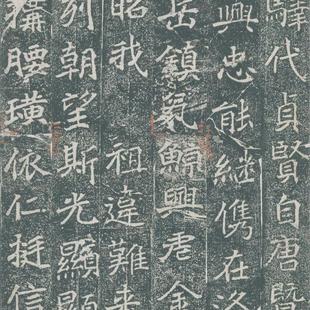 驛代貞賢自唐暨
興忠能繼儁在洛
岳鎮氣興君金
昭我 祖違難来
列朝望斯光顯顯
腰璜依仁挺信